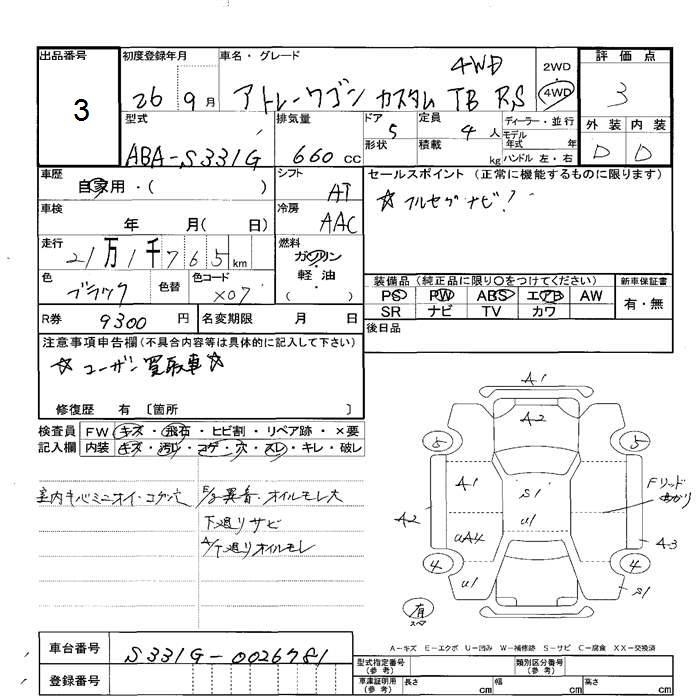 出品番号 初度登録年月 車名・グレード 2WD 評価点
3 26 9月 アトレーワゴン カスタム TB RS 4WD 4WD 3
型式 排気量 ドア 定員 ディーラー・並行 外装 内装
ABA-S331G 660 CC 5 4人 モデル年式 年 D D
形状 積載 kg ハンドル 左・右
車歴 シフト セールスポイント (正常に機能するものに限ります)
自家用・( ) AT ☆フルセグナビ!
車検 冷房
年 月( 日) AAC
走行 燃料
21万1千765km ガソリン・軽油
( )
色 色替 色コード 装備品 (純正品に限り○をつけてください) 新車保証書
ブラック X07 PS PW ABS エアB AW 有・無
SR ナビ TV カワ
R券 9300円 名変期限 月 日 後日品
注意事項申告欄(不具合内容等は具体的に記入して下さい)
☆ユーザー買取車☆
修復歴 有 〔箇所 〕
検査員 FW キズ・飛石・ヒビ割・リペア跡・×要
記入欄 内装 キズ・汚れ・コゲ・穴・スレ・キレ・破レ
E/g異音・オイルモレ大
下廻リサビ
A/T廻リオイルモレ
A1
A2
5 5
A1 S1
A2 U1 A3
UA4
4 4
U1 S1
有
スペア
A-キズ E-エクボ U-凹み W-補修跡 S-サビ C-腐食 XX-交換済
車台番号 S331G-0026781 型式指定番号(参考) 類別区分番号(参考)
登録番号 車庫証明用(参考) 長さ cm 幅 cm 高さ cm